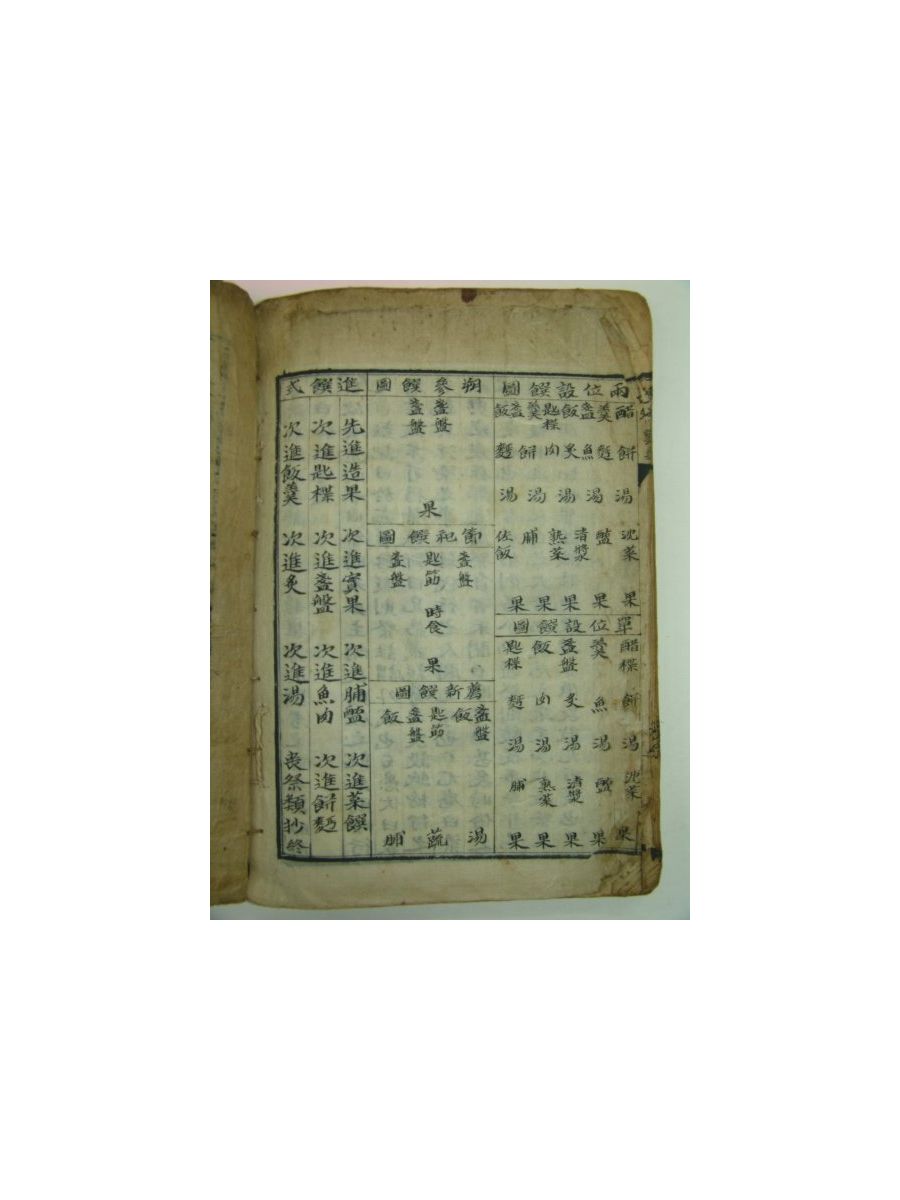 兩位設饌圖
醋 羹 盞 飯 匙楪 羹 盞 飯
餠 麪 魚 炙 肉 餠 麪
湯 湯 湯 湯 湯
沈菜 醢 清漿 熟菜 脯 佐飯
果 果 果 果 果
單位設饌圖
醋楪 羹 盞盤 飯 匙楪
餠 魚 炙 肉 麪
湯 湯 湯 湯 湯
沈菜 醢 清漿 熟菜 脯
果 果 果 果 果
朔參饌圖
盞盤 盞盤
果
節祀饌圖
盞盤 匙筋 盞盤
時食
果
薦新饌圖
盞盤 飯 匙筋 盞盤 飯
湯 蔬 脯
進饌式
先進造果 次進實果 次進脯醢 次進菜饌
次進匙楪 次進盞盤 次進魚肉 次進餠麪
次進飯羹 次進炙 次進湯 喪祭類抄終